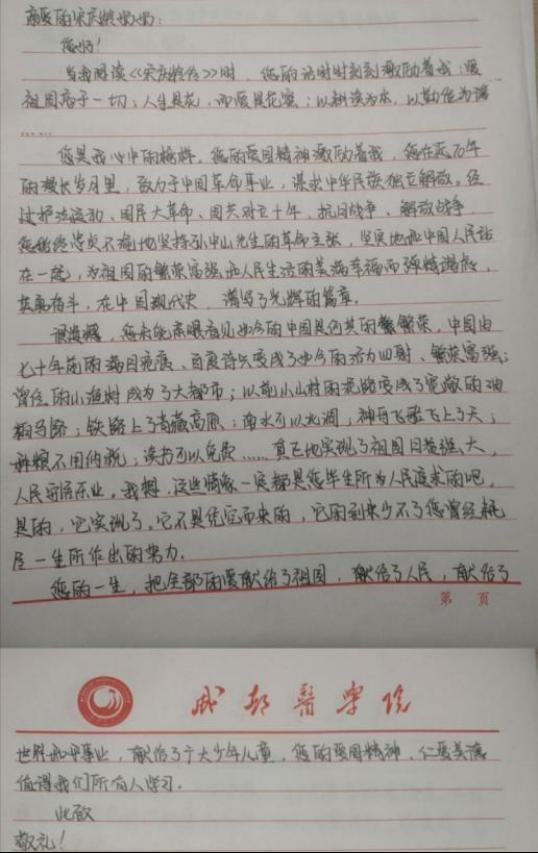 亲爱的宋庆龄奶奶：
您好！
当我阅读《宋庆龄传》时，您的话时时刻刻激励着我：爱
祖国高于一切；人生是花，而爱是花蜜；以耕读为本，以勤俭为
……
您是我心中的榜样，您的爱国精神激励着我，您在近70年
的漫长岁月里，致力于中国革命事业，谋求中华民族独立解放。经
过护法运动、国民大革命、国共对立十年、抗日战争、解放战争，
您始终忠贞不渝地坚持孙中山先生的革命主张，坚定地和中国人民站
在一起，为祖国的繁荣富强和人民生活的美满幸福而殚精竭虑，
英勇奋斗，在中国现代史，谱写了光辉的篇章。
很遗憾，您未能亲眼看见如今的中国是何其的繁荣，中国由
七十年前的满目疮痍、百废待兴变成了如今的活力四射、繁荣富强；
曾经的小渔村成为了大都市；以前小山村的泥路变成了宽敞的油
柏马路；铁路上了青藏高原；南水可以北调，神舟飞船飞上了天；
种粮不用纳税；读书可以免费……真正地实现了祖国日益强大，
人民安居乐业。我想，这些情景一定都是您毕生所为人民渴求的吧，
是的，它实现了。它不是凭空而来的，它的到来少不了您曾经耗
尽一生所作出的努力。
您的一生，把全部的爱献给了祖国，献给了人民，献给了
第 页
成都医学院
世界和平事业，献给了广大少年儿童，您的爱国精神、仁爱美德
值得我们所有人学习。
此致
敬礼！